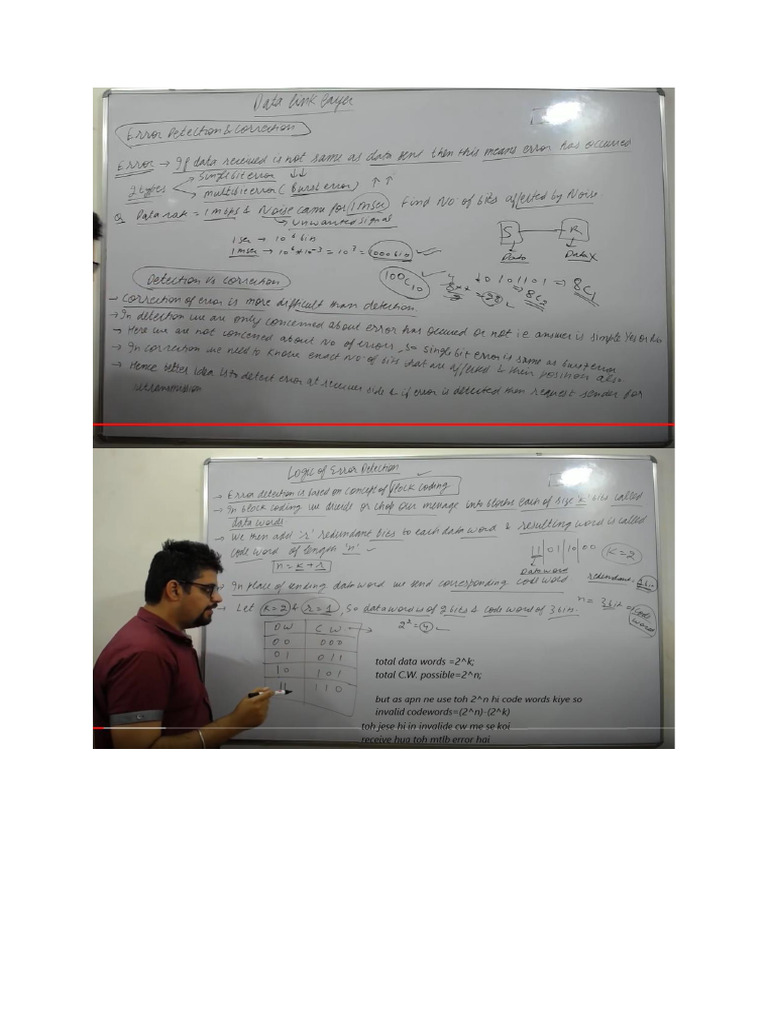 Data Link Layer
Error Detection & Correction
Error → If data received is not same as data send then this means error has occurred
2 types
Single bit error ↓↓
multibit error (Burst error) ↑ ↑
Q Data rate = 1 mbps & Noise came for 1 msec Find No of bits affected by Noise.
→ Unwanted signal
1 sec → 10^6 bits
1 msec → 10^6 * 10^-3 = 10^3 = 1000 bits
S R
Data Data X
100C10
10101101 ⇒ 8C1
⇒ 8C2
Detection Vs Correction
→ Correction of error is more difficult than detection.
→ In detection we are only concerned about error has occured or not i.e answer is simple Yes or No
→ Here we are not concerned about No of errors, so single bit error is same as burst error
→ In correction we need to know exact No of bits that are affected & their position also
→ Hence better idea is to detect error at receiver side & if error is detected then request sender for
retransmission
Logic of Error Detection
→ Error detection is based on concept of Block Coding
→ In block coding we divide or chop our message into blocks each of size 'k' bits called
data words
→ We then add 'r' redundant bits to each data word & resulting word is called
code word of length 'n'
n = k + r
11|01|10|00 k=2
Dataword
→ In place of sending data word we send corresponding code word
redundant = 1 bit
n = 3 bit of code
word
→ Let k=2 & r=1, So data word is of 2 bits & code word of 3 bits.
DW CW
2^2 = 4
00 000
01 011
10 101
11 110
total data words =2^k;
total C.W. possible=2^n;
but as apn ne use toh 2^n hi code words kiye so
invalid codewords=(2^n)-(2^k)
toh jese hi in invalide cw me se koi
receive hua toh mtlb error hai